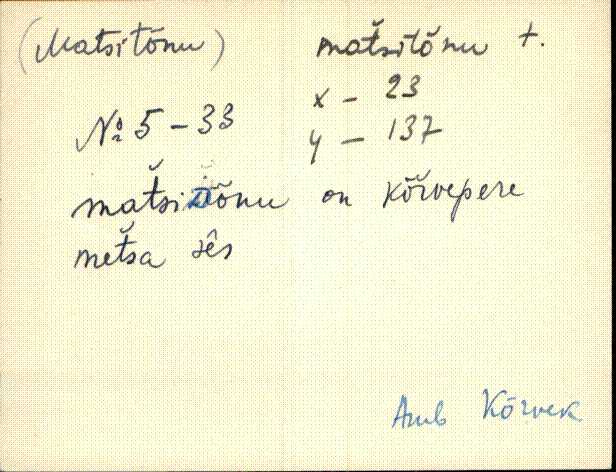 (Matsitõnu) mat̆sitõnu t.
x - 23
№ 5 - 33
y - 137
mat̆siD̀õnu on kõrvepere
met̆sa sês
Amb Kõrvek